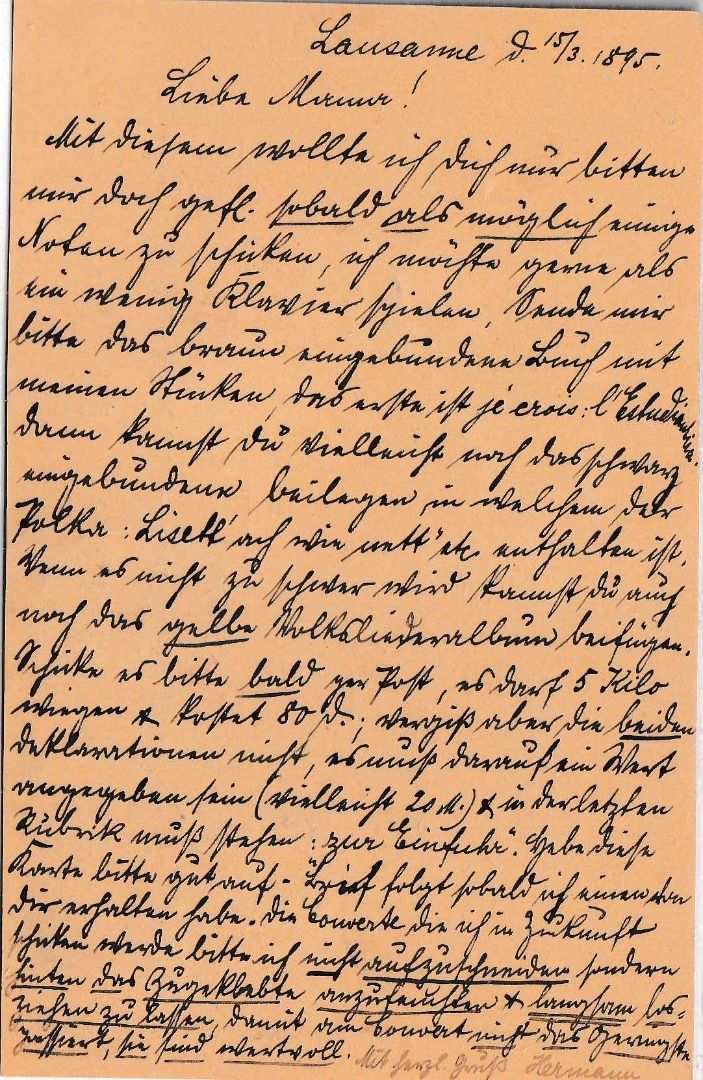 Lausanne d. 15/3. 1895.
Liebe Mama!
Mit diesem wollte ich Dich nur bitten
mir doch gefl. sobald als möglich einige
Noten zu schicken, ich möchte gerne als
ein wenig Klavier spielen, Sende mir
bitte das braun eingebundene Buch mit
meinen Stücken, das erste ist je crois: l'Estudiantina.
dann kannst Du vielleicht noch das schwarz
eingebundene beilegen in welchem der
Polka: Lisett' ach wie nett" etc. enthalten ist.
Wenn es nicht zu schwer wird kannst Du auch
noch das gelbe Volksliederalbum beifügen.
Schicke es bitte bald per Post, es darf 5 Kilo
wiegen & kostet 80 d.; vergiß aber die beiden
Deklarationen nicht, es muß darauf ein Wert
angegeben sein (vielleicht 20 M.) & in der letzten
Rubrik muß stehen: zur Einfuhr". Hebe diese
Karte bitte gut auf - Brief folgt sobald ich einen von
Dir erhalten habe. Die Couverte die ich in Zukunft
schicken werde bitte ich nicht aufzuschneiden sondern
hinten das Zugeklebte anzufeuchten & langsam los-
ziehen zu lassen, damit am Couvert nicht das Geringste
passiert, sie sind wertvoll. Mit herzl. Gruß Hermann